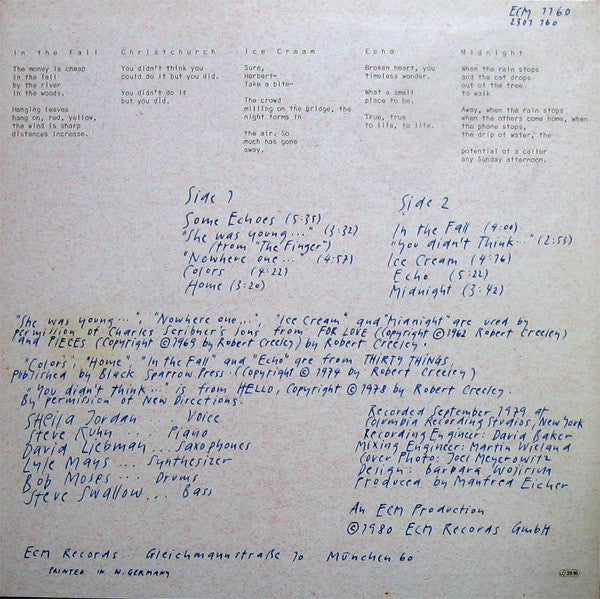 ECM 1160
2301 160
In the Fall
The money is cheap
in the fall
by the river
in the woods.
Hanging leaves
hang on, red, yellow,
the wind is sharp
distances increase.
Christchurch
You didn't think you
could do it but you did.
You didn't do it
but you did.
Ice Cream
Sure,
Herbert-
Take a bite-
The crowd
milling on the bridge, the
night forms in
the air. So
much has gone
away.
Echo
Broken heart, you
timeless wonder.
What a small
place to be.
True, true
to life, to life.
Midnight
When the rain stops
and the cat drops
out of the tree
to walk
Away, when the rain stops
when the others come home, when
the phone stops,
the drip of water, the
potential of a caller
any Sunday afternoon.
Side 1
Some Echoes (5:35)
"She was young..." (3:32)
(from "The Finger")
"Nowhere one..." (4:57)
Colors (4:22)
Home (3:20)
Side 2
In the Fall (4:00)
"You didn't Think..." (2:55)
Ice Cream (4:16)
Echo (5:22)
Midnight (3:42)
"She was young...", "Nowhere one...", "Ice Cream" and "Midnight" are used by
permission of Charles Scribner's Sons from FOR LOVE (Copyright © 1962 Robert Creeley)
and PIECES (Copyright © 1969 by Robert Creeley) by Robert Creeley.
"Colors", "Home", "In the Fall" and "Echo" are from THIRTY THINGS,
published by Black Sparrow Press (Copyright © 1974 by Robert Creeley)
"You didn't think..." is from HELLO, Copyright © 1978 by Robert Creeley.
By permission of New Directions.
Sheila Jordan ... Voice
Steve Kuhn ... Piano
David Liebman ... Saxophones
Lyle Mays ... Synthesizer
Bob Moses ... Drums
Steve Swallow ... Bass
Recorded September 1979 at
Columbia Recording Studios, New York
Recording Engineer: David Baker
Mixing Engineer: Martin Wieland
Cover Photo: Joel Meyerowitz
Design: Barbara Wojirsch
Produced by Manfred Eicher
An ECM Production
© 1980 ECM Records GmbH
ECM Records Gleichmannstraße 10 München 60
PRINTED IN W. GERMANY